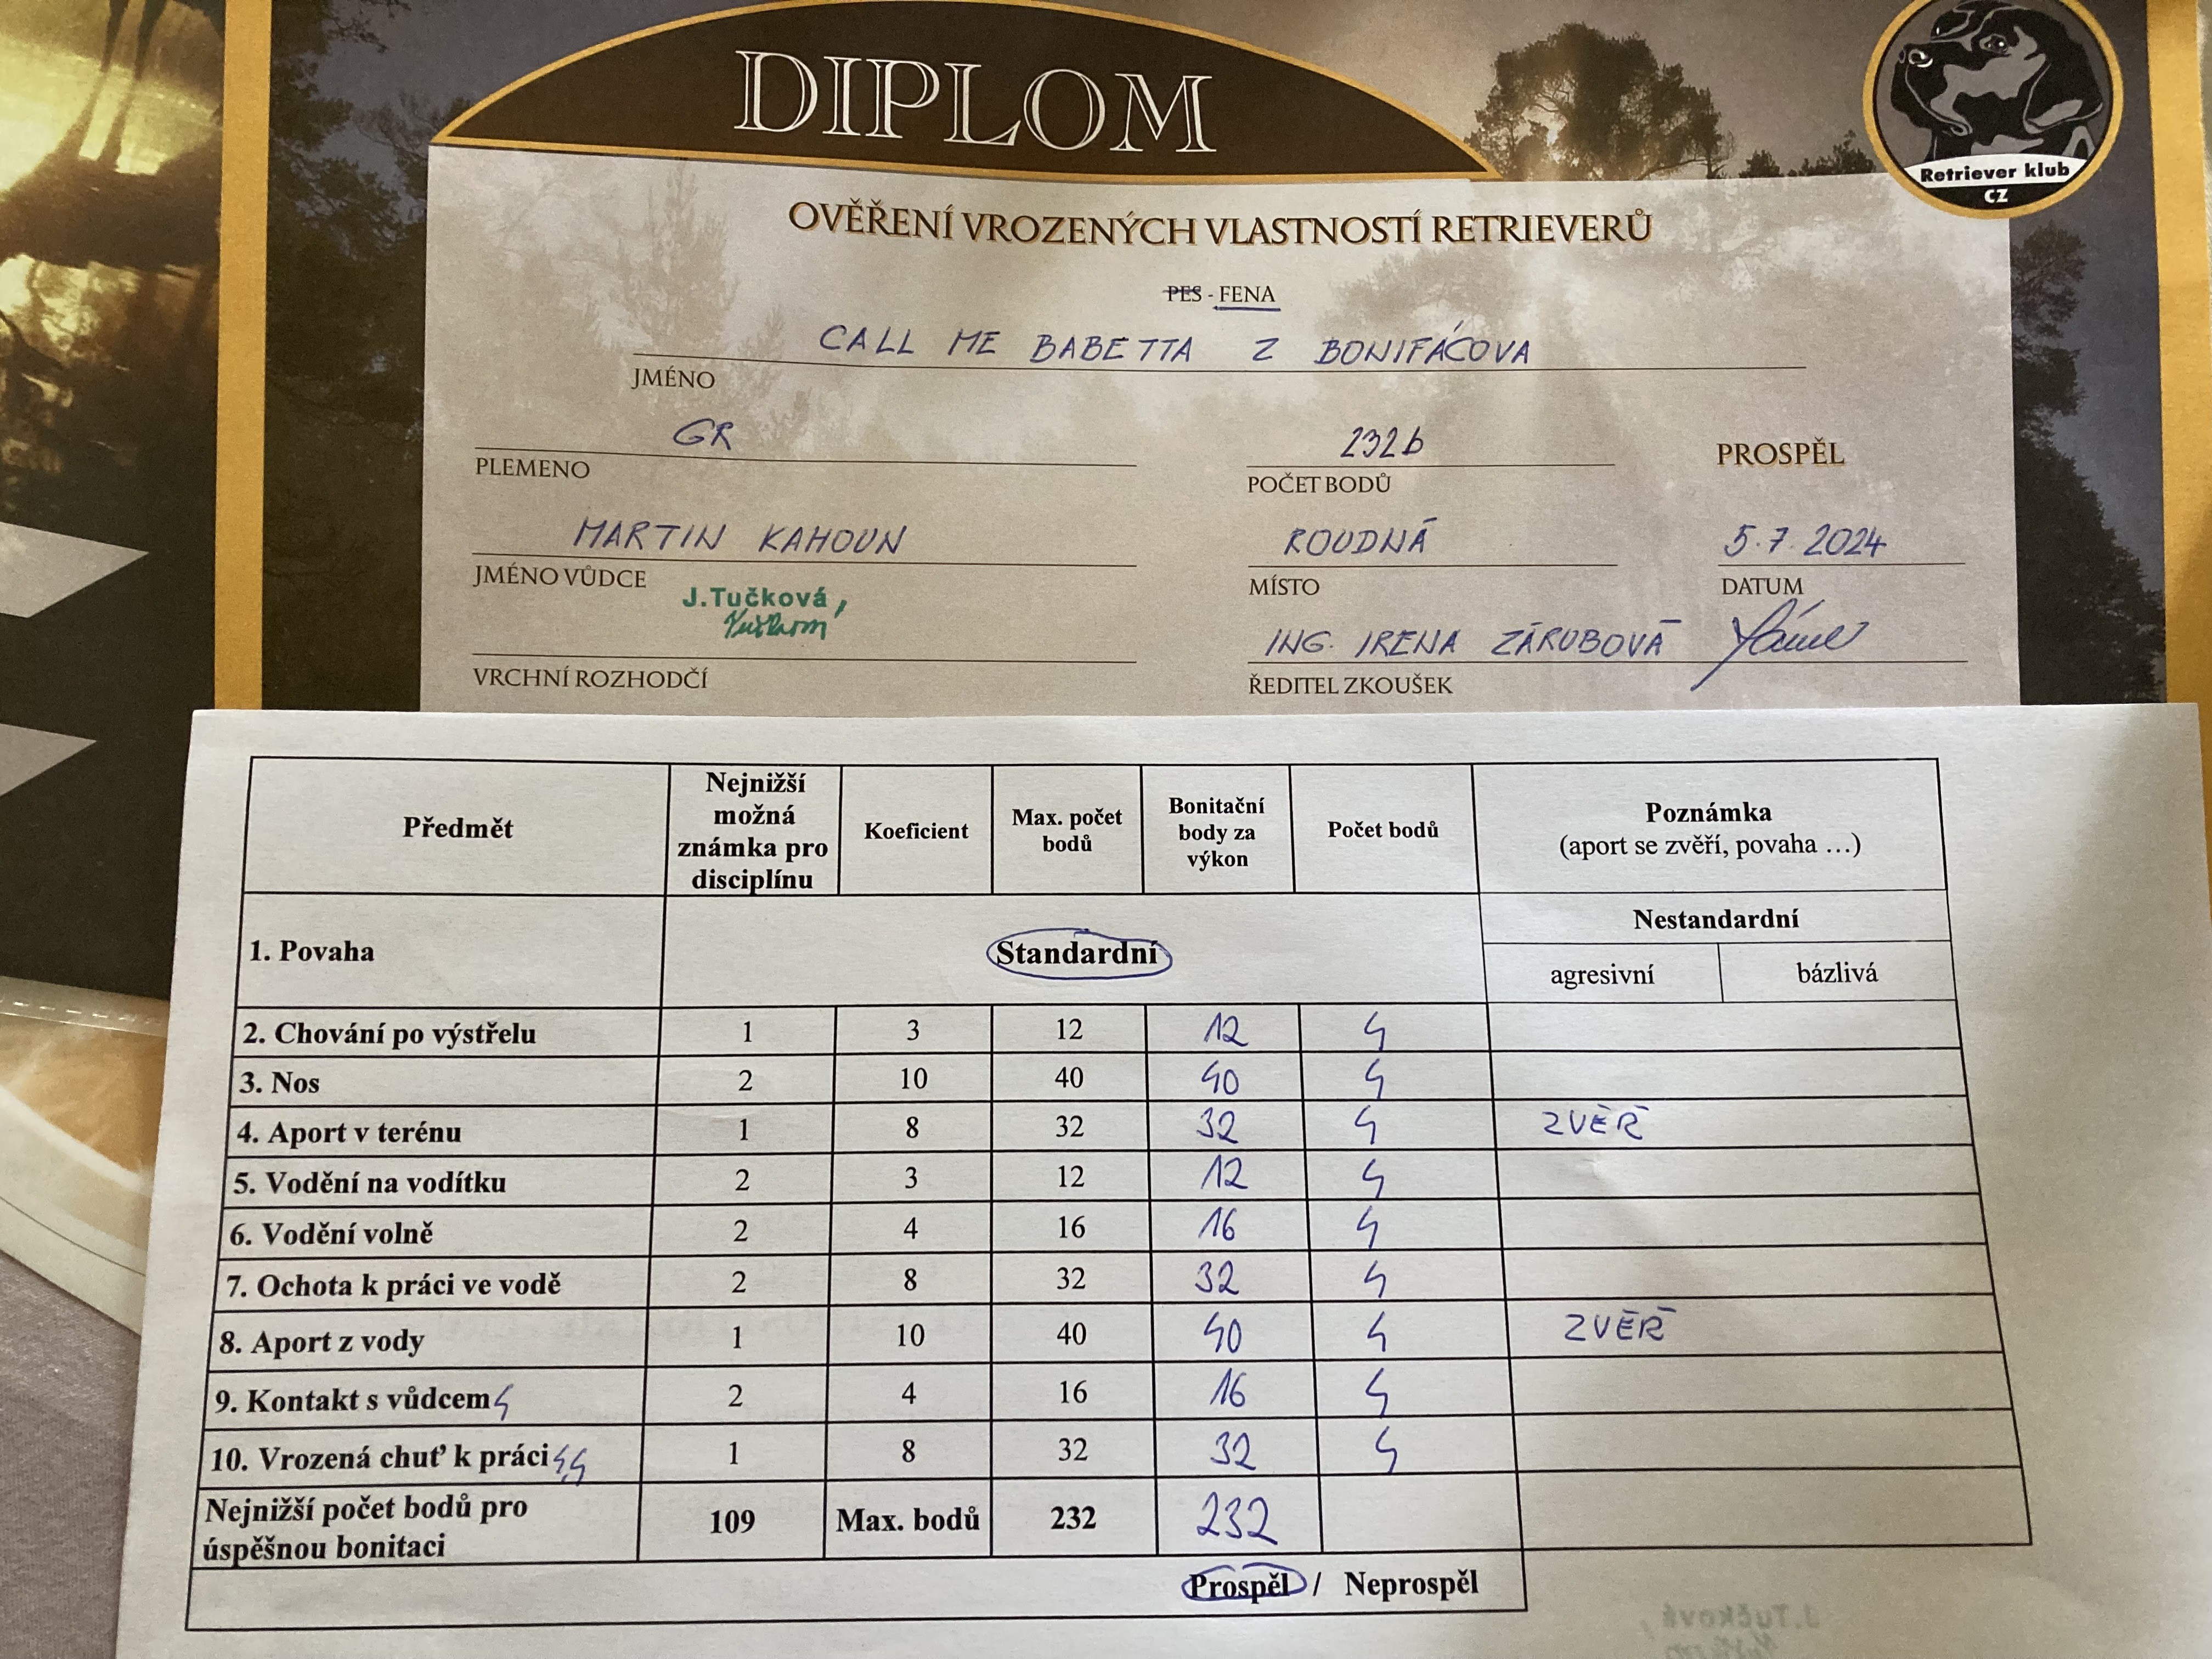 DIPLOM
Retriever klub
CZ
OVĚŘENÍ VROZENÝCH VLASTNOSTÍ RETRIEVERŮ
PES - FENA
CALL ME BABETTA Z BONIFÁCOVA
JMÉNO
GR 232b PROSPĚL
PLEMENO POČET BODŮ
MARTIN KAHOUN ROUDNÁ 5.7.2024
JMÉNO VŮDCE MÍSTO DATUM
J.Tučková,
ING. IRENA ZÁRUBOVÁ
VRCHNÍ ROZHODČÍ ŘEDITEL ZKOUŠEK
Předmět Nejnižší možná známka pro disciplínu Koeficient Max. počet bodů Bonitační body za výkon Počet bodů Poznámka (aport se zvěří, povaha …)
1. Povaha Standardní Nestandardní
agresivní bázlivá
2. Chování po výstřelu 1 3 12 12 4
3. Nos 2 10 40 40 4
4. Aport v terénu 1 8 32 32 4 ZVĚŘ
5. Vodění na vodítku 2 3 12 12 4
6. Vodění volně 2 4 16 16 4
7. Ochota k práci ve vodě 2 8 32 32 4
8. Aport z vody 1 10 40 40 4 ZVĚŘ
9. Kontakt s vůdcem 4 2 4 16 16 4
10. Vrozená chuť k práci 4,4 1 8 32 32 4
Nejnižší počet bodů pro úspěšnou bonitaci 109 Max. bodů 232 232
Prospěl / Neprospěl